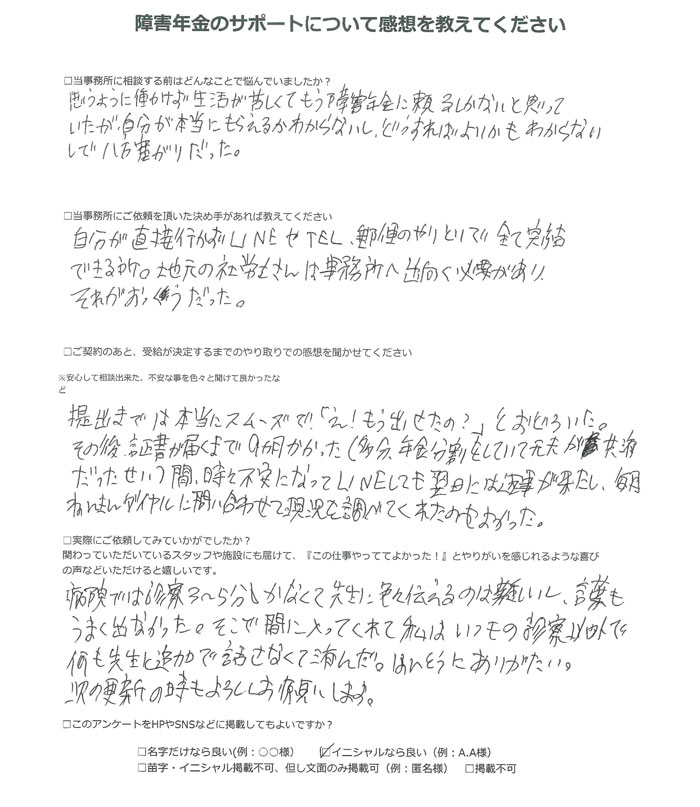 障害年金のサポートについて感想を教えてください
□当事務所に相談する前はどんなことで悩んでいましたか？
思うように働かけず生活が苦しくてもう障害年金に頼るしかないと思って
いたが、自分が本当にもらえるかわからないし、どうすればよいかもわからない
しで八方塞がりだった。
□当事務所にご依頼を頂いた決め手があれば教えてください
自分が直接行かずLINEやTEL、郵便のやりとりで全て完結
できる所。地元の社労士さんは事務所へ出向く必要があり、
それがおっくうだった。
□ご契約のあと、受給が決定するまでのやり取りでの感想を聞かせてください
※安心して相談出来た、不安な事を色々と聞けて良かったな
ど
提出までは本当にスムーズで「え！もう出せたの？」とおどろいた。
その後、証書が届くまで9カ月かかった（多分、年金分割をしていて元夫が共済
だったせい）間、時々不安になってLINEしても翌日には返事が来たし、毎月
ねんきんダイヤルに問い合わせて現況を調べてくれたのもよかった。
□実際にご依頼してみていかがでしたか？
関わっていただいているスタッフや施設にも届けて、『この仕事やっててよかった！』とやりがいを感じれるような喜び
の声などいただけると嬉しいです。
病院では診察3〜5分しかなくて先生に色々伝えるのは難しいし、言葉も
うまく出なかった。そこで間に入ってくれて私はいつもの診察以外で
何も先生と追加で話さなくて済んだ。ほんとうにありがたい。
次の更新の時もよろしくお願いします。
□このアンケートをHPやSNSなどに掲載してもよいですか？
□名字だけなら良い(例：○○様） ☑イニシャルなら良い（例：A.A様）
□苗字・イニシャル掲載不可、但し文面のみ掲載可（例：匿名様） □掲載不可